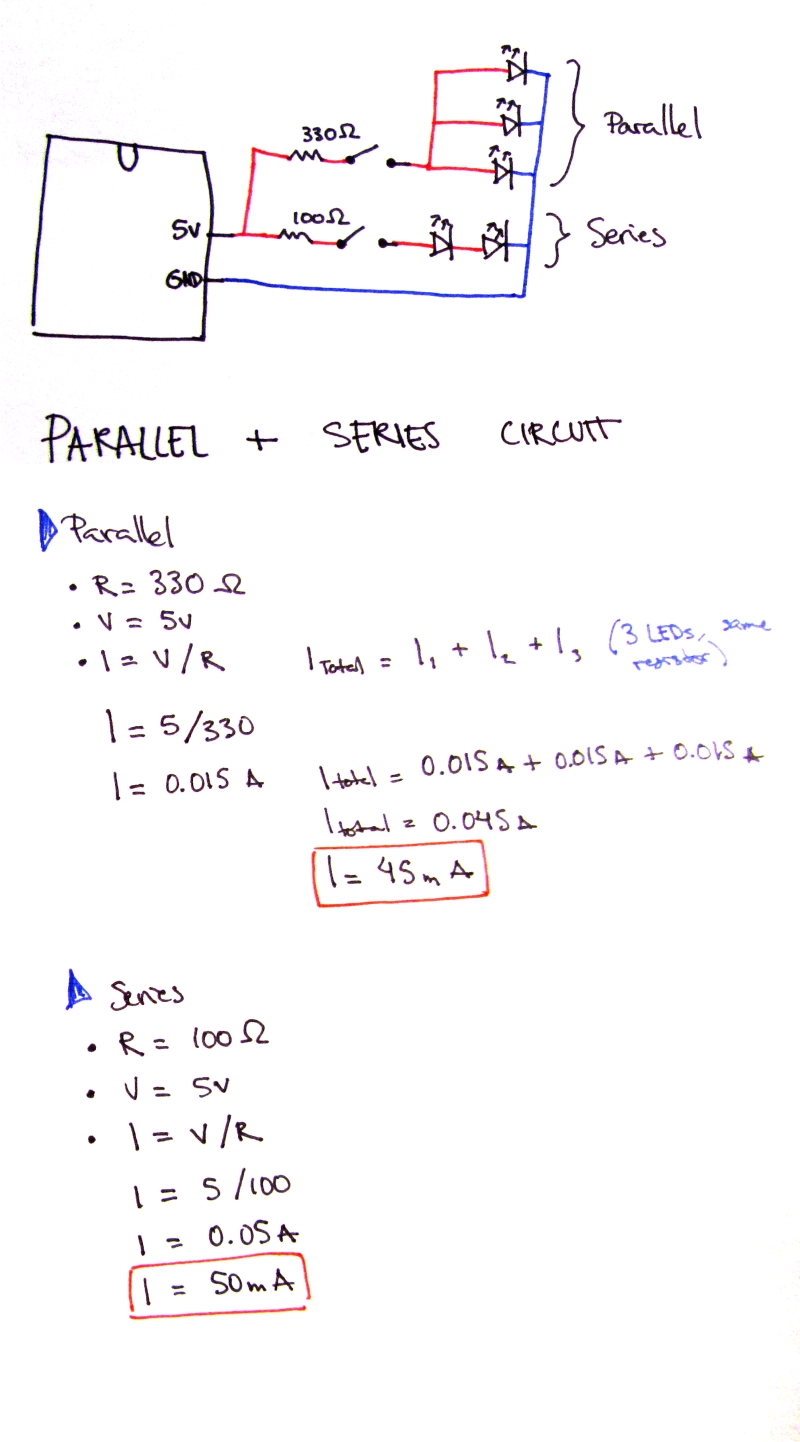 330Ω
Parallel
5V
100Ω
Series
GND
PARALLEL + SERIES CIRCUIT
Parallel
• R = 330 Ω
• V = 5V
• I = V/R
I Total = I₁ + I₂ + I₃ (3 LEDs, same resistor)
I = 5/330
I = 0.015 A
I total = 0.015 A + 0.015 A + 0.015 A
I total = 0.045 A
I = 45 mA
Series
• R = 100 Ω
• V = 5V
• I = V/R
I = 5/100
I = 0.05 A
I = 50 mA